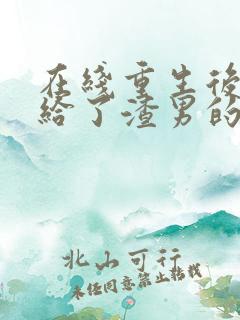 在线重生後
给了渣男的
北山可行
未经同意禁止转载